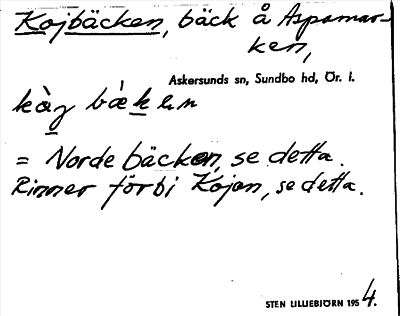 Kojbäcken, bäck å Aspamar-
ken,
Askersunds sn, Sundbo hd, Ör. l.
kàj bäkken
= Norde bäcken, se detta.
Rinner förbi Kojan, se detta.
STEN LILLIEBJÖRN 1954.